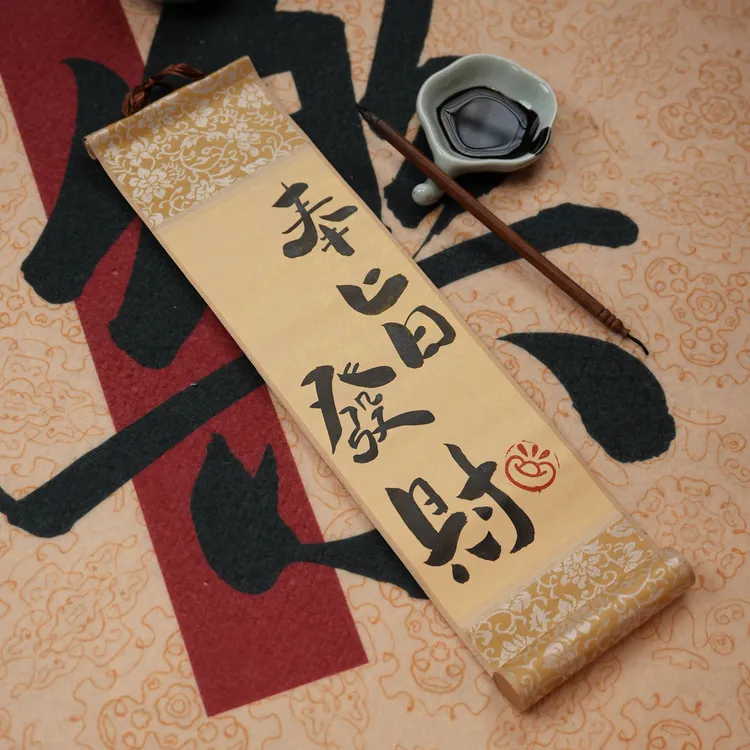 奉旨發財